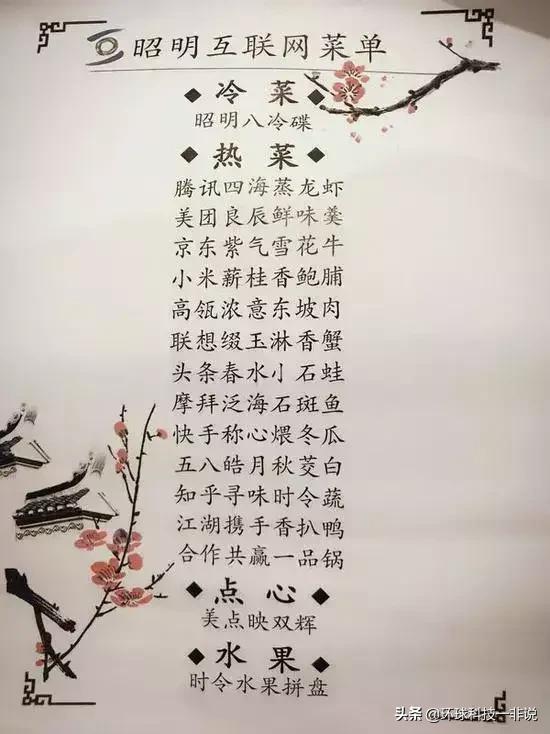 昭明互联网菜单
◆冷菜◆
昭明八冷碟
◆热菜◆
腾讯四海蒸龙虾
美团良辰鲜味羹
京东紫气雪花牛
小米薪桂香鲍脯
高瓴浓意东坡肉
联想缀玉淋香蟹
头条春水小石蛙
摩拜泛海石斑鱼
快手称心煨冬瓜
五八皓月秋茭白
知乎寻味时令蔬
江湖携手香扒鸭
合作共赢一品锅
◆点心◆
美点映双辉
◆水果◆
时令水果拼盘
头条@环球科技一非说